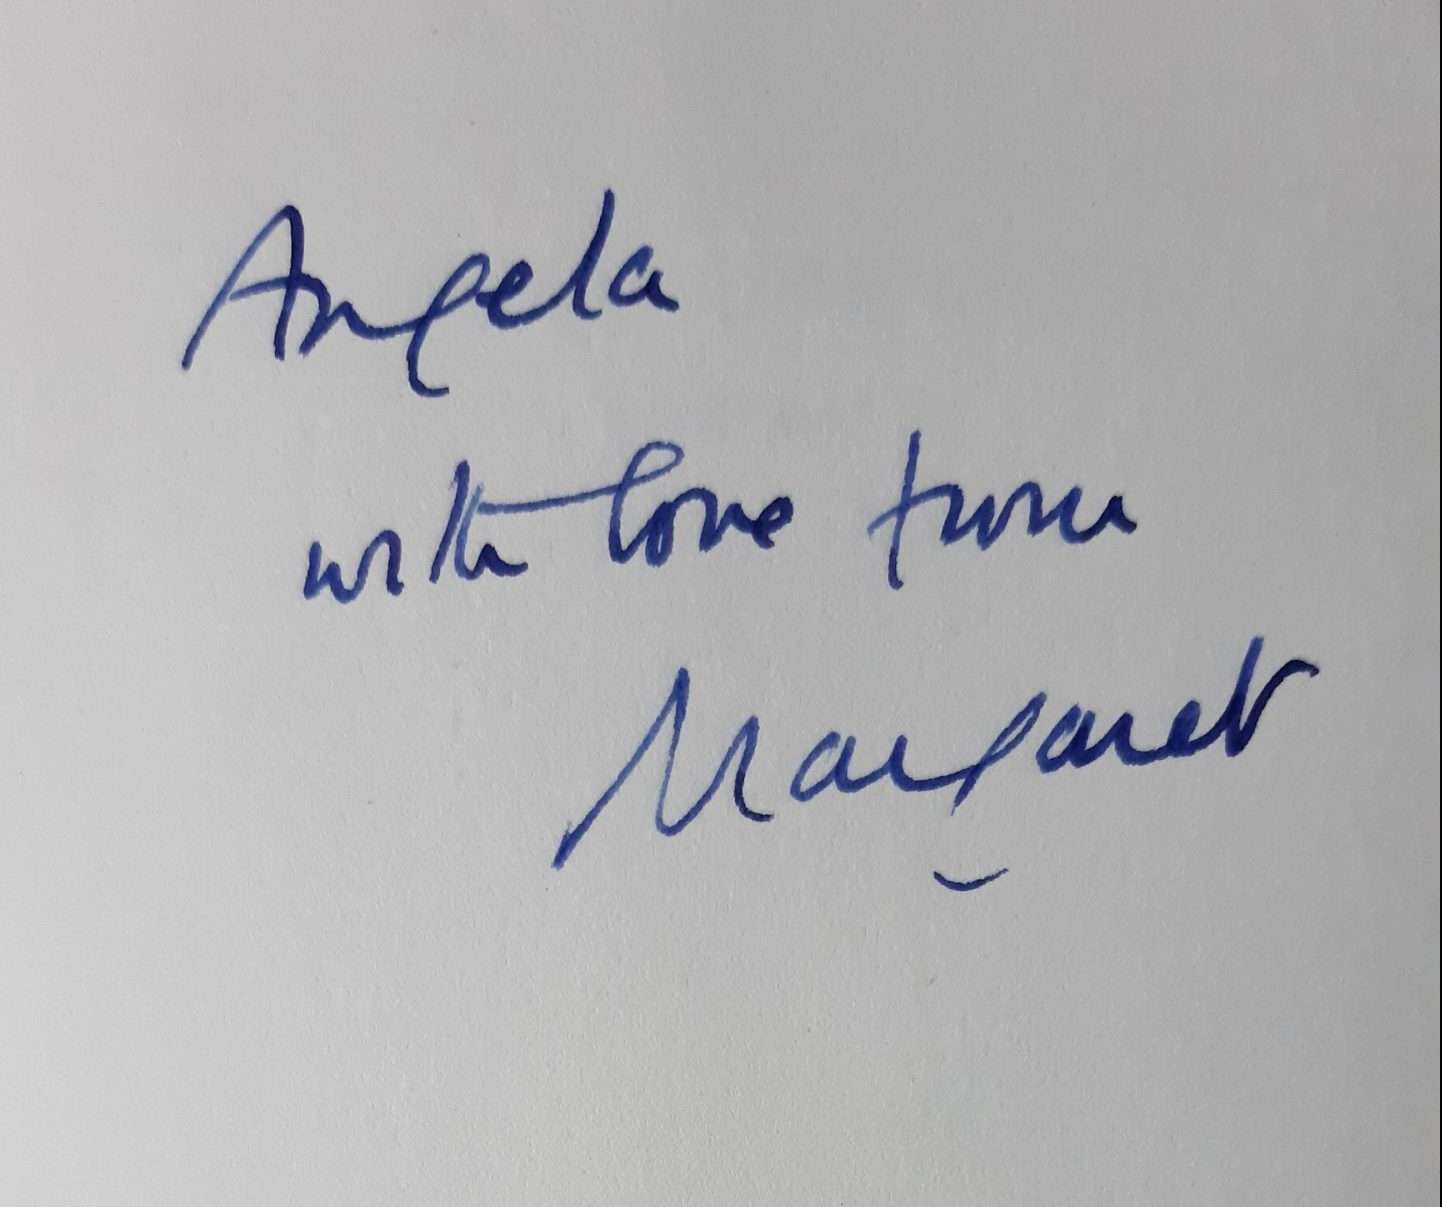 Angela
with love from
Margaret